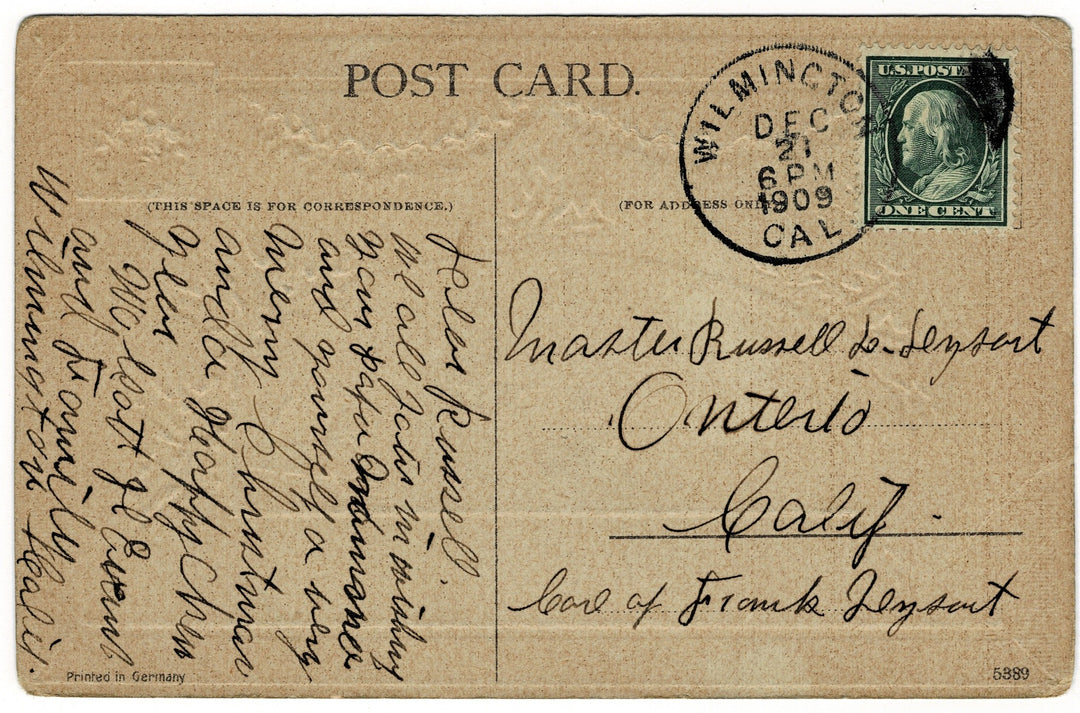 POST CARD.
(THIS SPACE IS FOR CORRESPONDENCE.)
(FOR ADDRESS ONLY
WILMINGTON
DEC
21
6 PM
1909
CAL
U.S. POSTA
ONE CENT
Dear Russell.
we all join in wishing
your papa mamma
and yourself a very
merry Christmas
and a Happy New
year
and Family
Wilmington Calif.
Master Russell
Onterio
Calif.
Care of Frank
Printed in Germany
5389